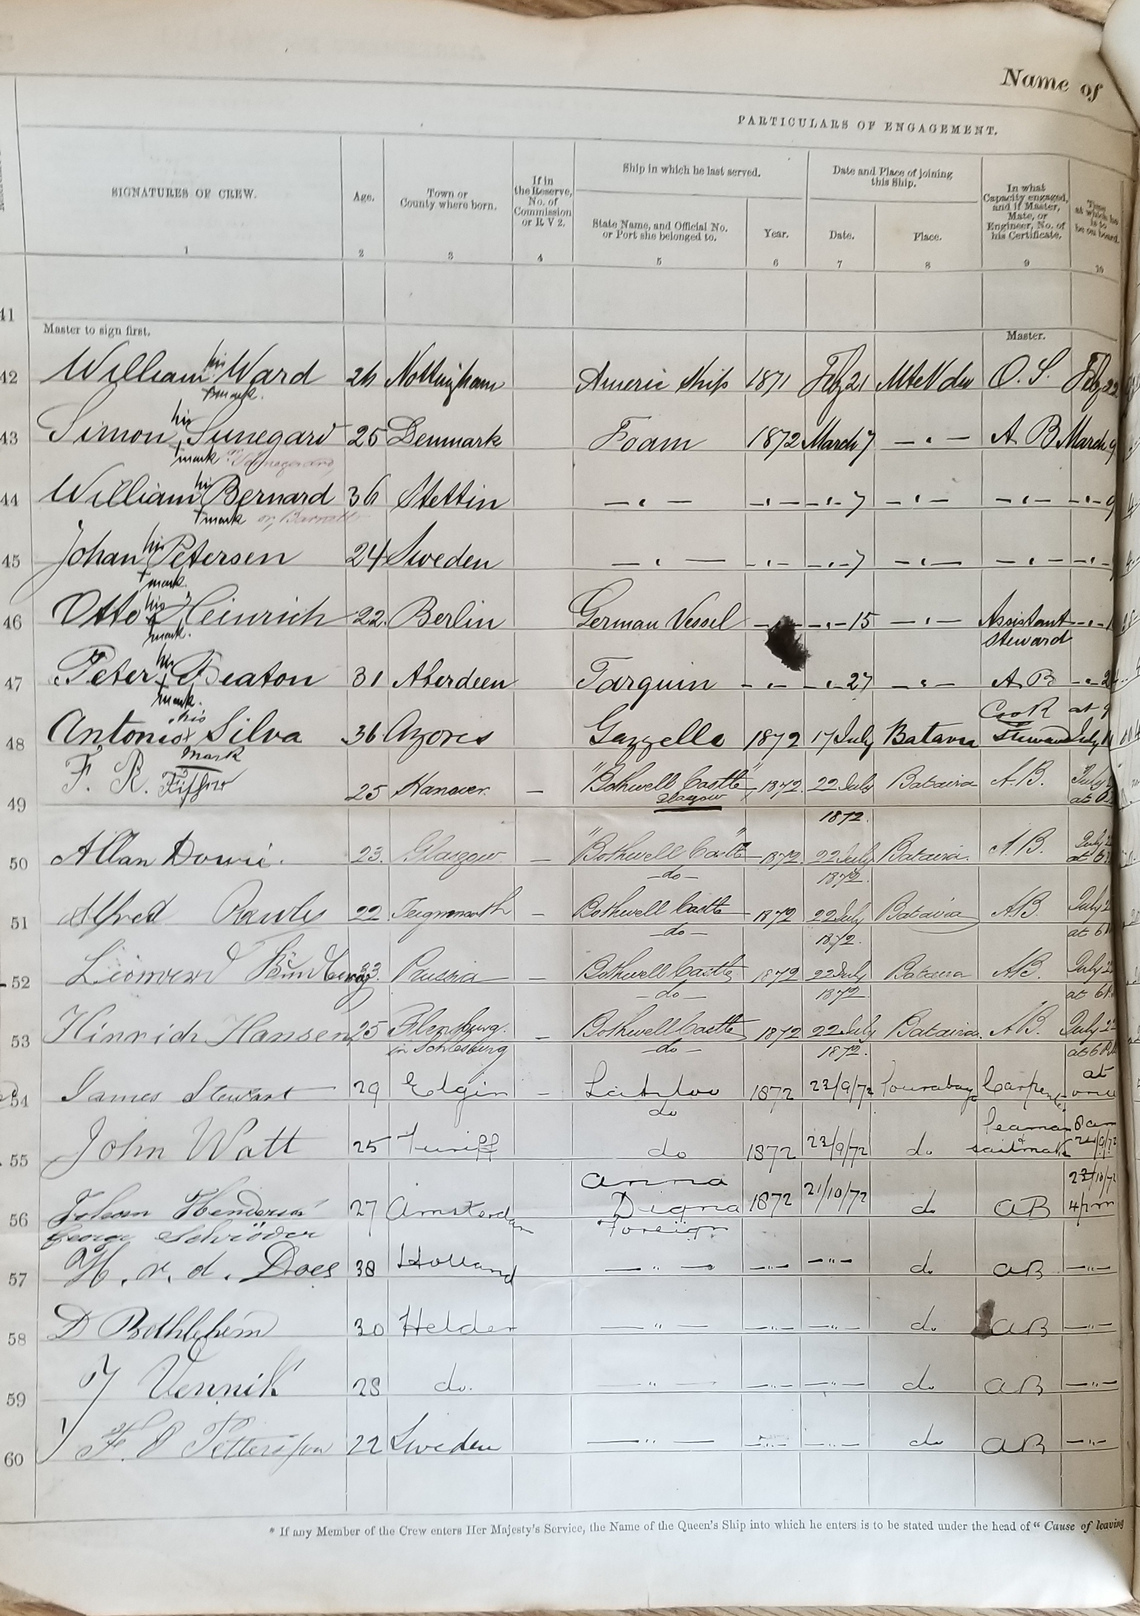 Name of
PARTICULARS OF ENGAGEMENT.
SIGNATURES OF CREW.
Age.
Town or
County where born.
If in
the Reserve,
No. of
Commission
or R V 2.
Ship in which he last served.
State Name, and Official No.
or Port she belonged to.
Year.
Date and Place of joining
this Ship.
Date.
Place.
In what
Capacity engaged,
and if Master,
Mate, or
Engineer, No. of
his Certificate.
Time
at which he
is to
be on board.
1 2 3 4 5 6 7 8 9 10
41
Master to sign first. Master.
42 William his Ward 26 Nottingham Americ Ship 1871 Feby 21 MteVdeo O.S. Feby 22
mark
43 Simon his Sunegard 25 Denmark Foam 1872 March 7 — " — A B March 9
mark
44 William his Bernard 36 Stettin — " — — " — — " — 7 — " — — " — — " — 9
mark or Barnett
45 Johan his Petersen 24 Sweden — " — — " — — " — 7 — " — — " — — " —
mark
46 Otto his Heinrich 22 Berlin German Vessel — " — 15 — " — Assistant
mark Steward
47 Peter his Beaton 31 Aberdeen Tarquin — " — — " — 27 — " — A B
mark
48 Antonio his Silva 36 Azores Gazzelle 1872 17 July Batavia Cook
mark Steward July
49 F. R. 25 Hanover — "Bothwell Castle" 1872 22 July Batavia A.B. July
Glasgow 1872.
50 Allan Dowie. 23 Glasgow — "Bothwell Castle" 1872 22 July Batavia A B. July
— do — 1872.
51 Alfred 22 Teignmouth — Bothwell Castle 1872 22 July Batavia AB July
— do — 1872.
52 23 Prussia — Bothwell Castle 1872 22 July Batavia AB. July
— do — 1872
53 Hinrich Hansen 25 Flensburg. — Bothwell Castle 1872 22 July Batavia AB. July
in Schlesburg — do — 1872.
54 James Stewart 29 Elgin — 1872 23/9/72 Sourabaya Carpenter at once
do
55 John Watt 25 Turriff do 1872 23/9/72 do Seaman & sailmaker 8 am
56 Johan Henderson 27 Amsterdam Anna Digna 1872 21/10/72 do AB 4 pm
George Schröder Foreign
57 H. v. d. Does 38 Holland — " — — " — — " — do AB — " —
58 D Bethlehem 30 Helder — " — — " — — " — do AB — " —
59 J Vennik 28 do. — " — — " — — " — do AB — " —
60 22 Sweden — " — — " — — " — do AB — " —
* If any Member of the Crew enters Her Majesty's Service, the Name of the Queen's Ship into which he enters is to be stated under the head of "Cause of leaving